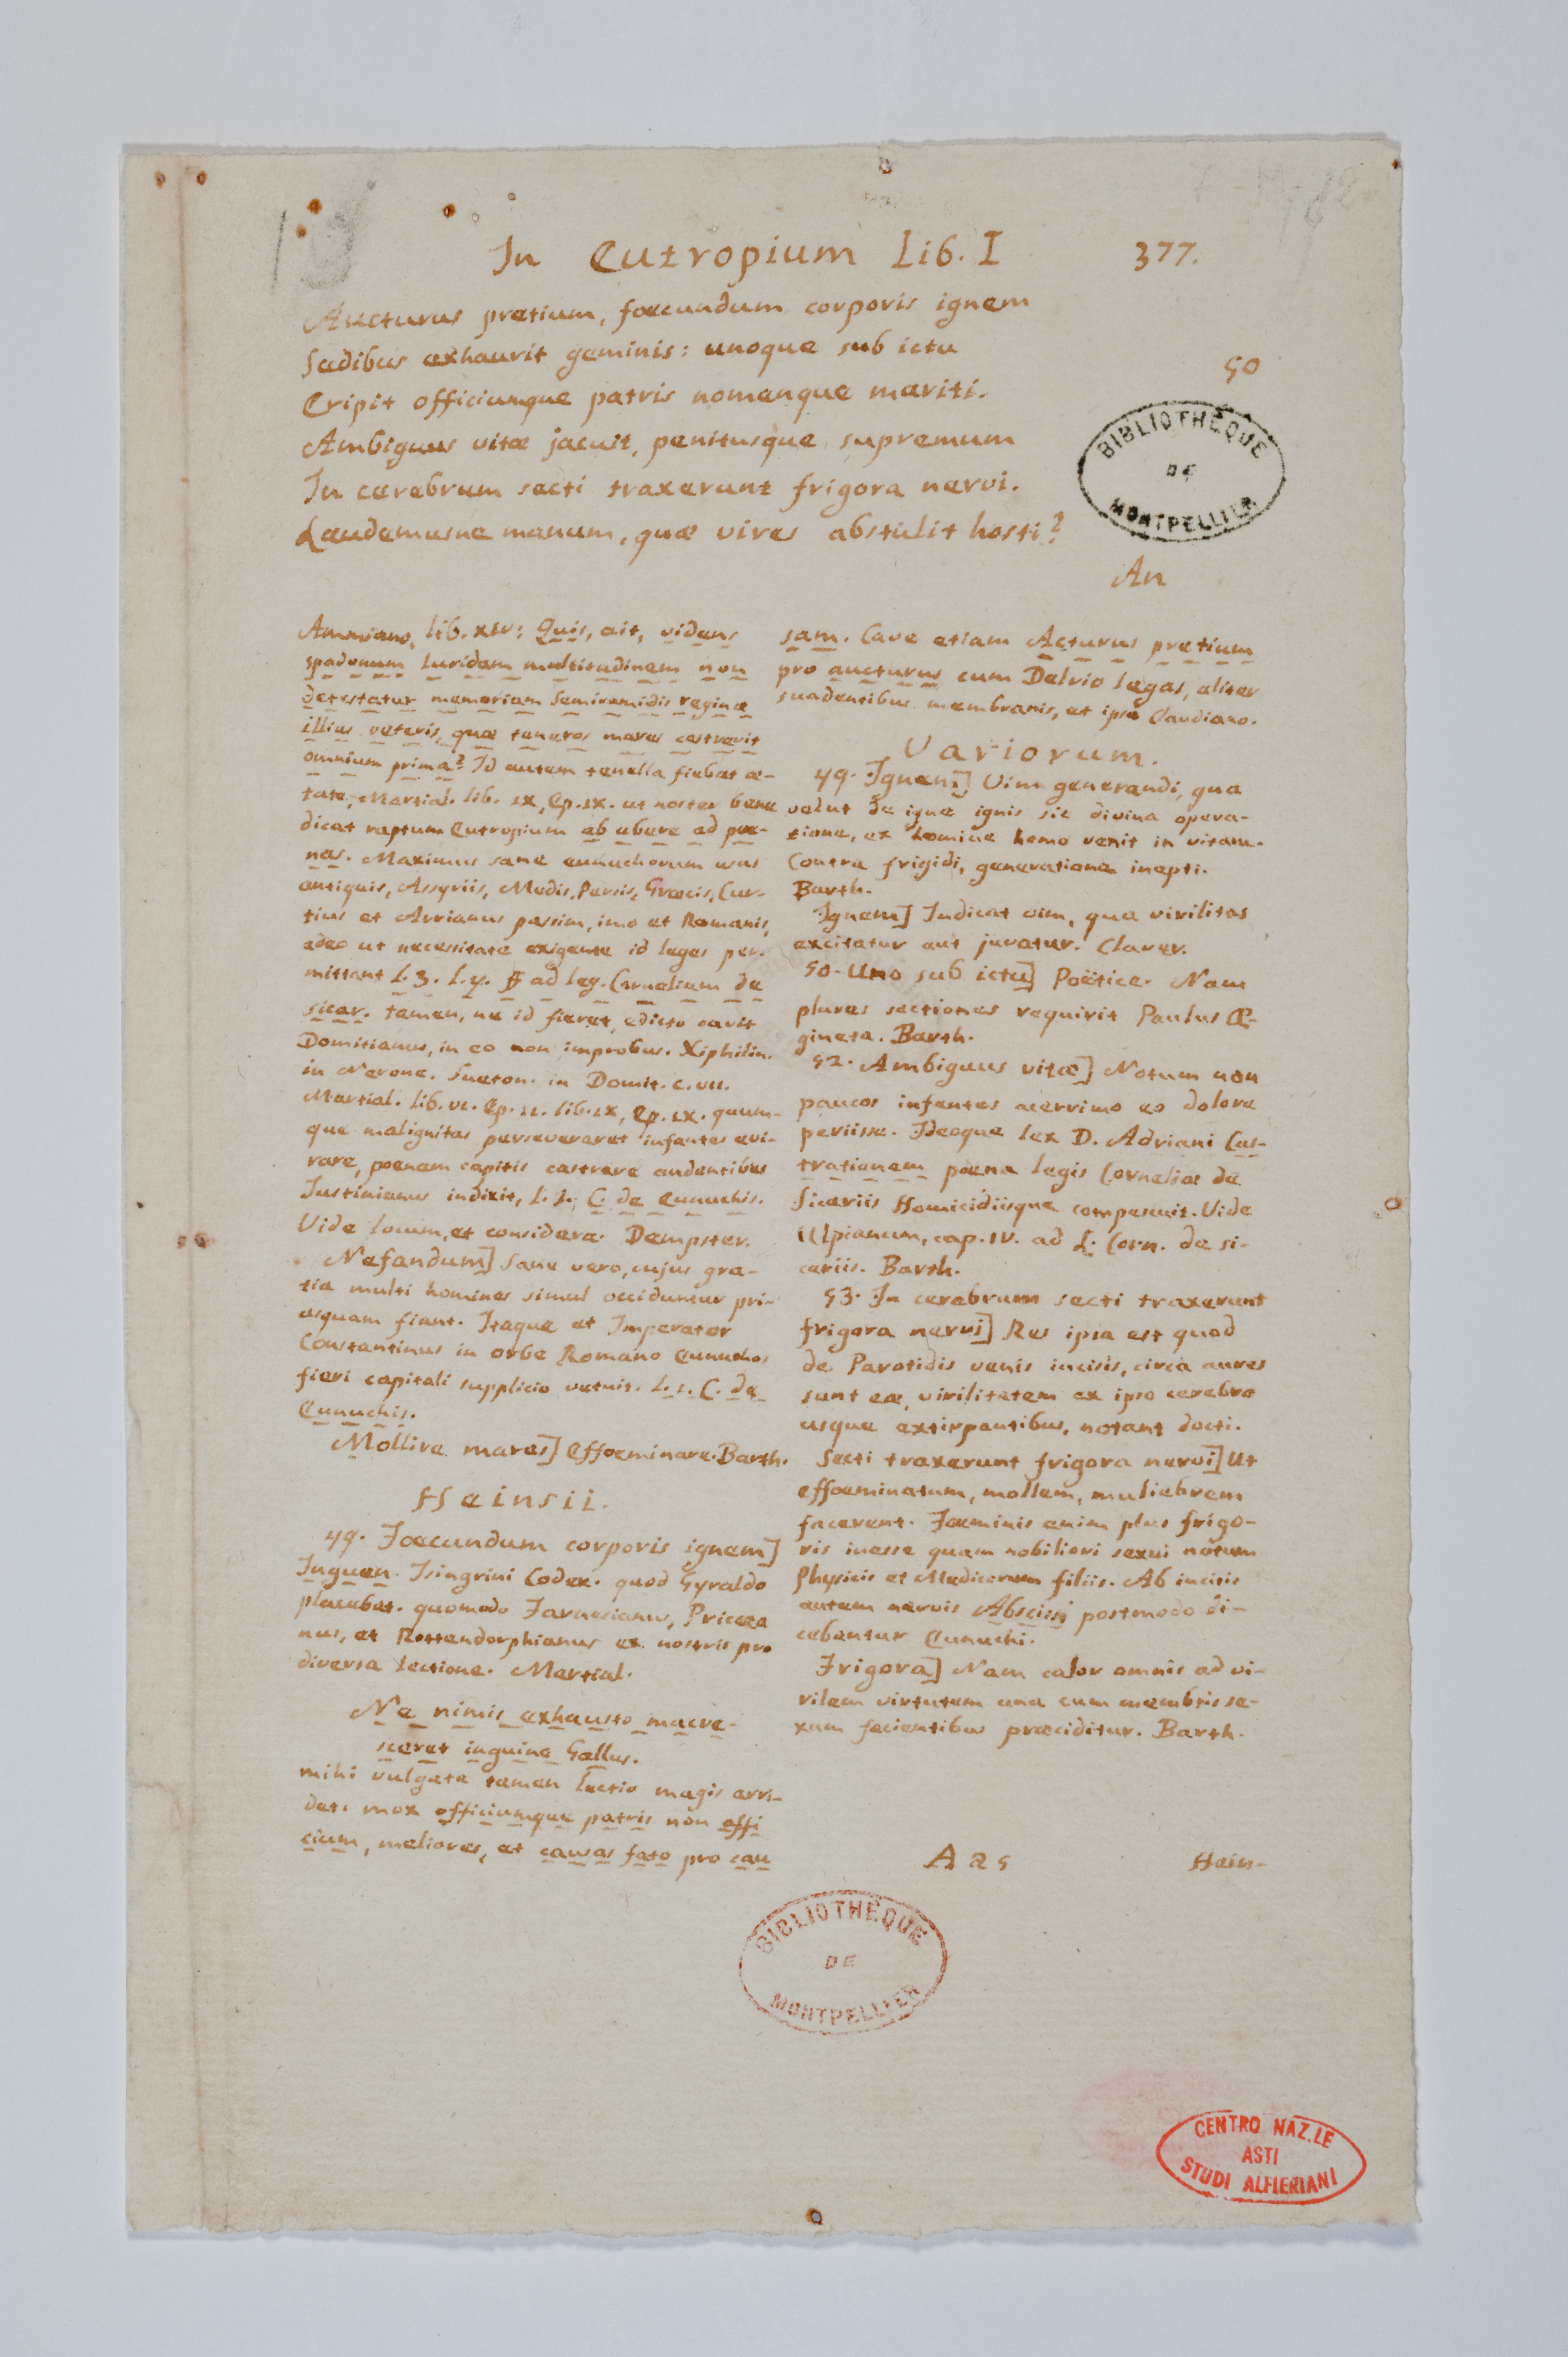 In Eutropium Lib. I 377.
Aucturus pretium, foecundum corporis ignem
Sedibus exhaurit geminis: unoque sub ictu 50
Eripit officiumque patris nomenque mariti.
Ambiguus vitæ jacuit, penitusque supremum
In cerebrum secti traxerunt frigora nervi.
Laudemusne manum, quæ vires abstulit hosti?
An
Ammiano, lib. XIV: Quis, ait, videns
spadonum luridam multitudinem non
detestatur memoriam Semiramidis reginæ
illius veteris, quæ teneros mares castravit
omnium prima? Id autem tenella fiebat æ-
tate, Martial. lib. IX, Ep. IX. ut noster bene
dicat raptum Eutropium ab ubere ad poe-
nas. Maximus sane eunuchorum usus
antiquis, Assyriis, Medis, Persis, Græcis, Cur-
tius et Arrianus passim, imo et Romanis,
adeo ut necessitate exigente id leges per-
mittant L. 3. L. 4. ff ad leg. Corneliam de
sicar. tamen, ne id fieret, edicto cavit
Domitianus, in eo non improbus. Xiphilin.
in Nerone. Sueton. in Domit. c. VII.
Martial. lib. VI. Ep. II. lib. IX, Ep. IX. quum-
que malignitas perseveraret infantes evi-
rare, poenam capitis castrare audentibus
Justinianus indixit, L. I. C. de Eunuchis.
Vide locum, et considera. Dempster.
Nefandum] Sane vero, cujus gra-
tia multi homines simul occiduntur pri-
usquam fiant. Itaque et Imperator
Constantinus in orbe Romano Eunuchos
fieri capitali supplicio vetuit. L. I. C. de
Eunuchis.
Mollire mares] Effoeminare. Barth.
Heinsii.
49. Foecundum corporis ignem]
Inguen Isingrini Codex. quod Gyraldo
placebat. quomodo Farnesianus, Pricæa
nus, et Rottendorphianus ex nostris pro
diversa lectione. Martial.
Ne nimis exhausto macre-
sceret inguine Gallus.
mihi vulgata tamen lectio magis arri-
det. mox officiumque patris non offi
cium, meliores, et causas fato pro cau
sam. Cave etiam Acturus pretium
pro aucturus cum Delrio legas, aliter
suadentibus membranis, et ipso Claudiano.
Variorum.
49. Ignem] Vim generandi, qua
velut de igne ignis sic divina opera-
tione, ex homine homo venit in vitam.
Contra frigidi, generatione inepti.
Barth.
Ignem] Indicat vim, qua virilitas
excitatur aut juvatur. Claver.
50. Uno sub ictu] Poëtice. Nam
plures sectiones requirit Paulus Æ-
gineta. Barth.
52. Ambiguus vitæ] Notum non
paucos infantes acerrimo eo dolore
periisse. Ideoque lex D. Adriani Cas-
trationem poena legis Corneliæ de
Sicariis Homicidiisque compescuit. Vide
Ulpianum, cap. IV. ad L. Corn. de si-
cariis. Barth.
53. In cerebrum secti traxerunt
frigora nervi] Res ipsa est quod
de Parotidis venis incisis, circa aures
sunt eæ, virilitatem ex ipso cerebro
usque extirpantibus, notant docti.
Secti traxerunt frigora nervi] Ut
effoeminatum, mollem, muliebrem
facerent. Foeminis enim plus frigo-
ris inesse quam nobiliori sexui notum
Physicis et Medicorum filiis. Ab incisis
autem nervis Abscissi postmodo di-
cebantur Eunuchi.
Frigora] Nam calor omnis ad vi-
rilem virtutem una cum membris se-
xum facientibus præciditur. Barth.
A a 5 Hein-
BIBLIOTHÈQUE
DE
MONTPELLIER
BIBLIOTHÈQUE
DE
MONTPELLIER
CENTRO NAZ.LE
ASTI
STUDI ALFIERIANI